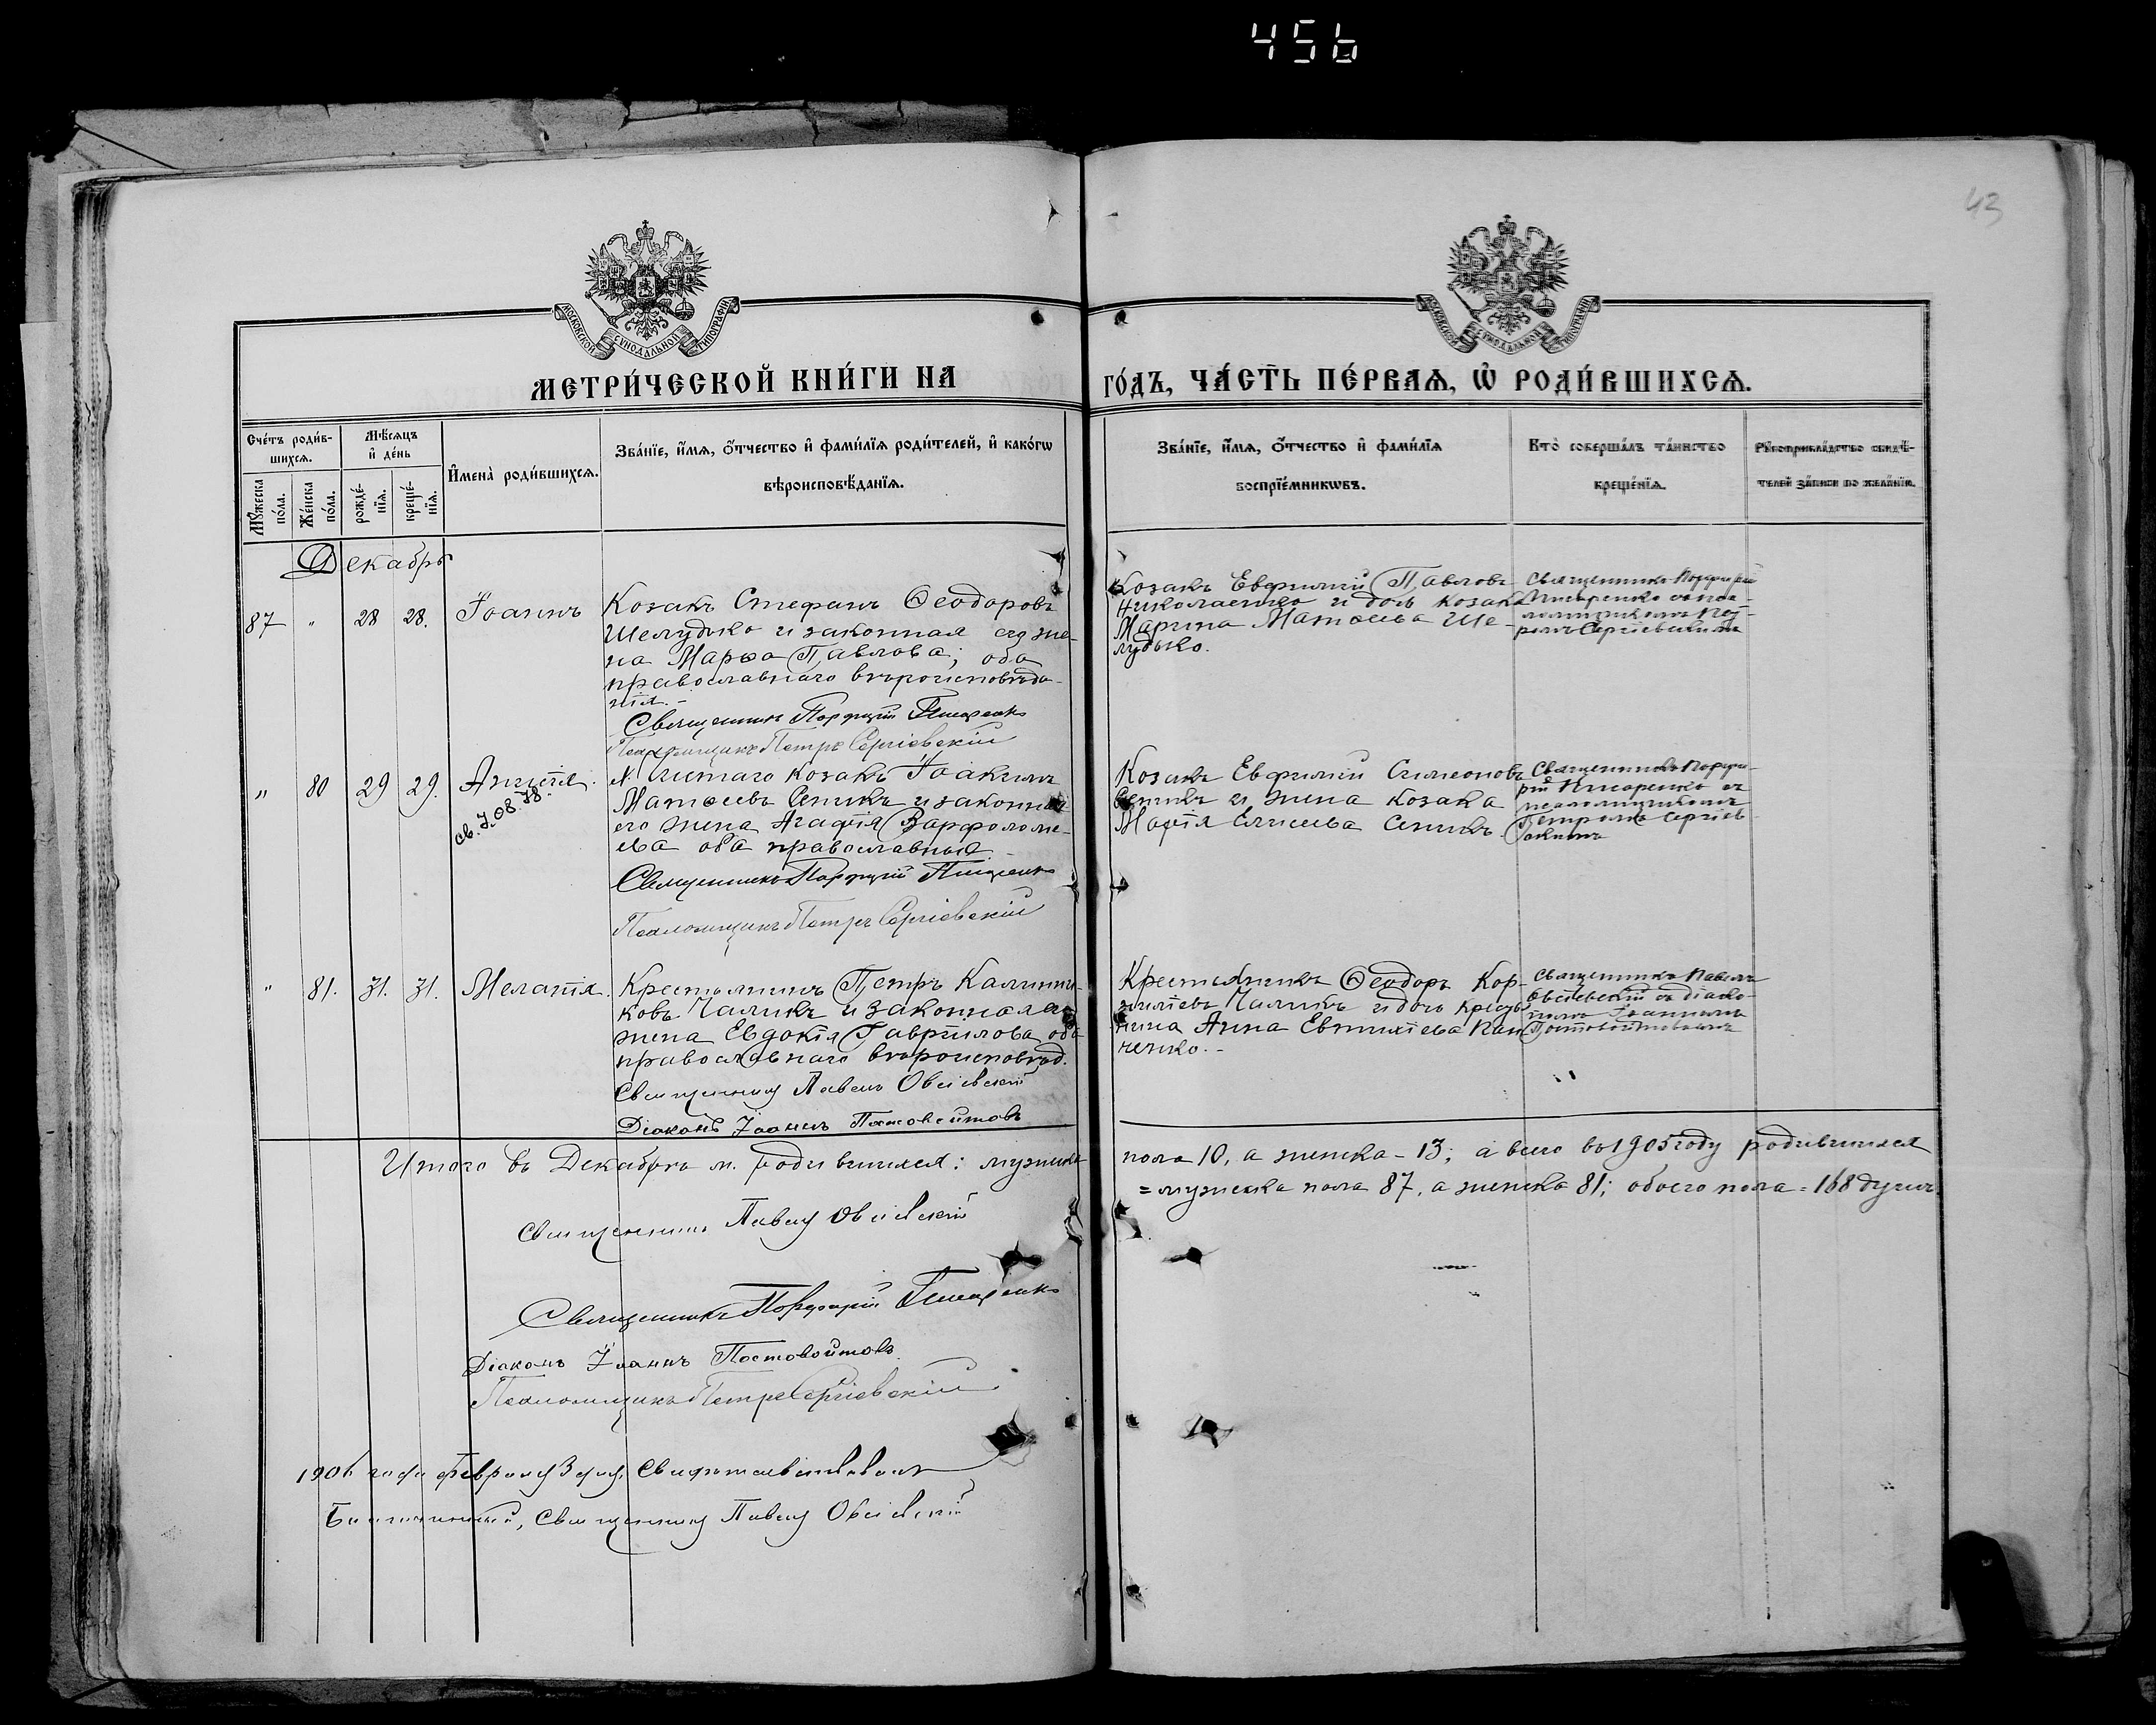 456
43
МОСКОВСКОЙ СУНОДАЛЬНОЙ ТИПОГРАФІИ
МОСКОВСКОЙ СУНОДАЛЬНОЙ ТИПОГРАФІИ
МЕТРИ́ЧЕСКОЙ КНИ́ГИ НА
ГО́ДЪ, ЧА́СТЬ ПЕ́РВАѦ, Ѡ РОДИ́ВШИХСѦ.
Сче́тъ роди́в-
шихсѧ.
Мѣ́сѧцъ
и҆ де́нь
Мꙋ́жеска по́ла.
Же́нска по́ла.
рожде́-
нїѧ.
креще́-
нїѧ.
И҆мена̀ роди́вшихсѧ.
Зва́нїе, и҆́мѧ, ѻ҆́тчество и҆ фами́лїѧ роди́телей, и҆ како́гѡ
вѣроисповѣ́данїѧ.
Зва́нїе, и҆́мѧ, ѻ҆́тчество и҆ фами́лїѧ
воспрїе́мникѡвъ.
Кто̀ соверша́лъ та́инство
креще́нїѧ.
Рꙋкоприкла́дство свидѣ́-
телей за́писи по жела́нїю.
Декабрь
87 " 28 28. Іоаннъ
Козакъ Стефанъ Ѳеодоровъ
Шелудько и законная его же-
на Марѳа Павлова; оба
православнаго вѣроисповѣда-
нія.-
Священникъ Порфирій Писаренко
Псаломщикъ Петръ Сергіевскій
Козакъ Евфимій Павловъ
Николаенко и дочь козака
Марина Матѳеева Ше-
лудько.
Священникъ Порфирій
Писаренко съ пса-
ломщикомъ Пет-
ромъ Сергіевскимъ
" 80 29 29. Анисія.
св. 7.08.78.
Козакъ Іоакимъ
Матѳеевъ Сеникъ и законная
его жена Агафія Варфоломе-
ева оба православные
Священникъ Порфирій Писаренко
Псаломщикъ Петръ Сергіевскій
Козакъ Евфимій Симеоновъ
Сеникъ и жена козака
Марія Елисеева Сеникъ.
Священникъ Порфи-
рій Писаренко съ
псаломщикомъ
Петромъ Сергіев-
скимъ
" 81. 31. 31. Меланія.
Крестьянинъ Петръ Калинни-
ковъ Чаликъ и законная его
жена Евдокія Гавріилова, оба
православнаго вѣроисповѣд.
Священникъ Павелъ Овсіевскій
Діаконъ Іоаннъ Постовойтовъ
Крестьянинъ Ѳеодоръ Кор-
ниліевъ Чаликъ и дочь крестья-
нина Анна Евтихіева Пан-
ченко.-
Священникъ Павелъ
Овсіевскій съ діако-
номъ Іоанномъ
Постовойтовымъ
Итого въ Декабрѣ м. родившихся: мужска
пола 10, а женска - 13; а всего въ 1905 году родившихся
= мужска пола 87, а женска 81; обоего пола = 168 душъ.
Священникъ Павелъ Овсіевскій
Священникъ Порфирій Писаренко
Діаконъ Іоаннъ Постовойтовъ.
Псаломщикъ Петръ Сергіевскій
1906 года февраля 3 дня, свидѣтельствовалъ
Благочинный, Священникъ Павелъ Овсіевскій